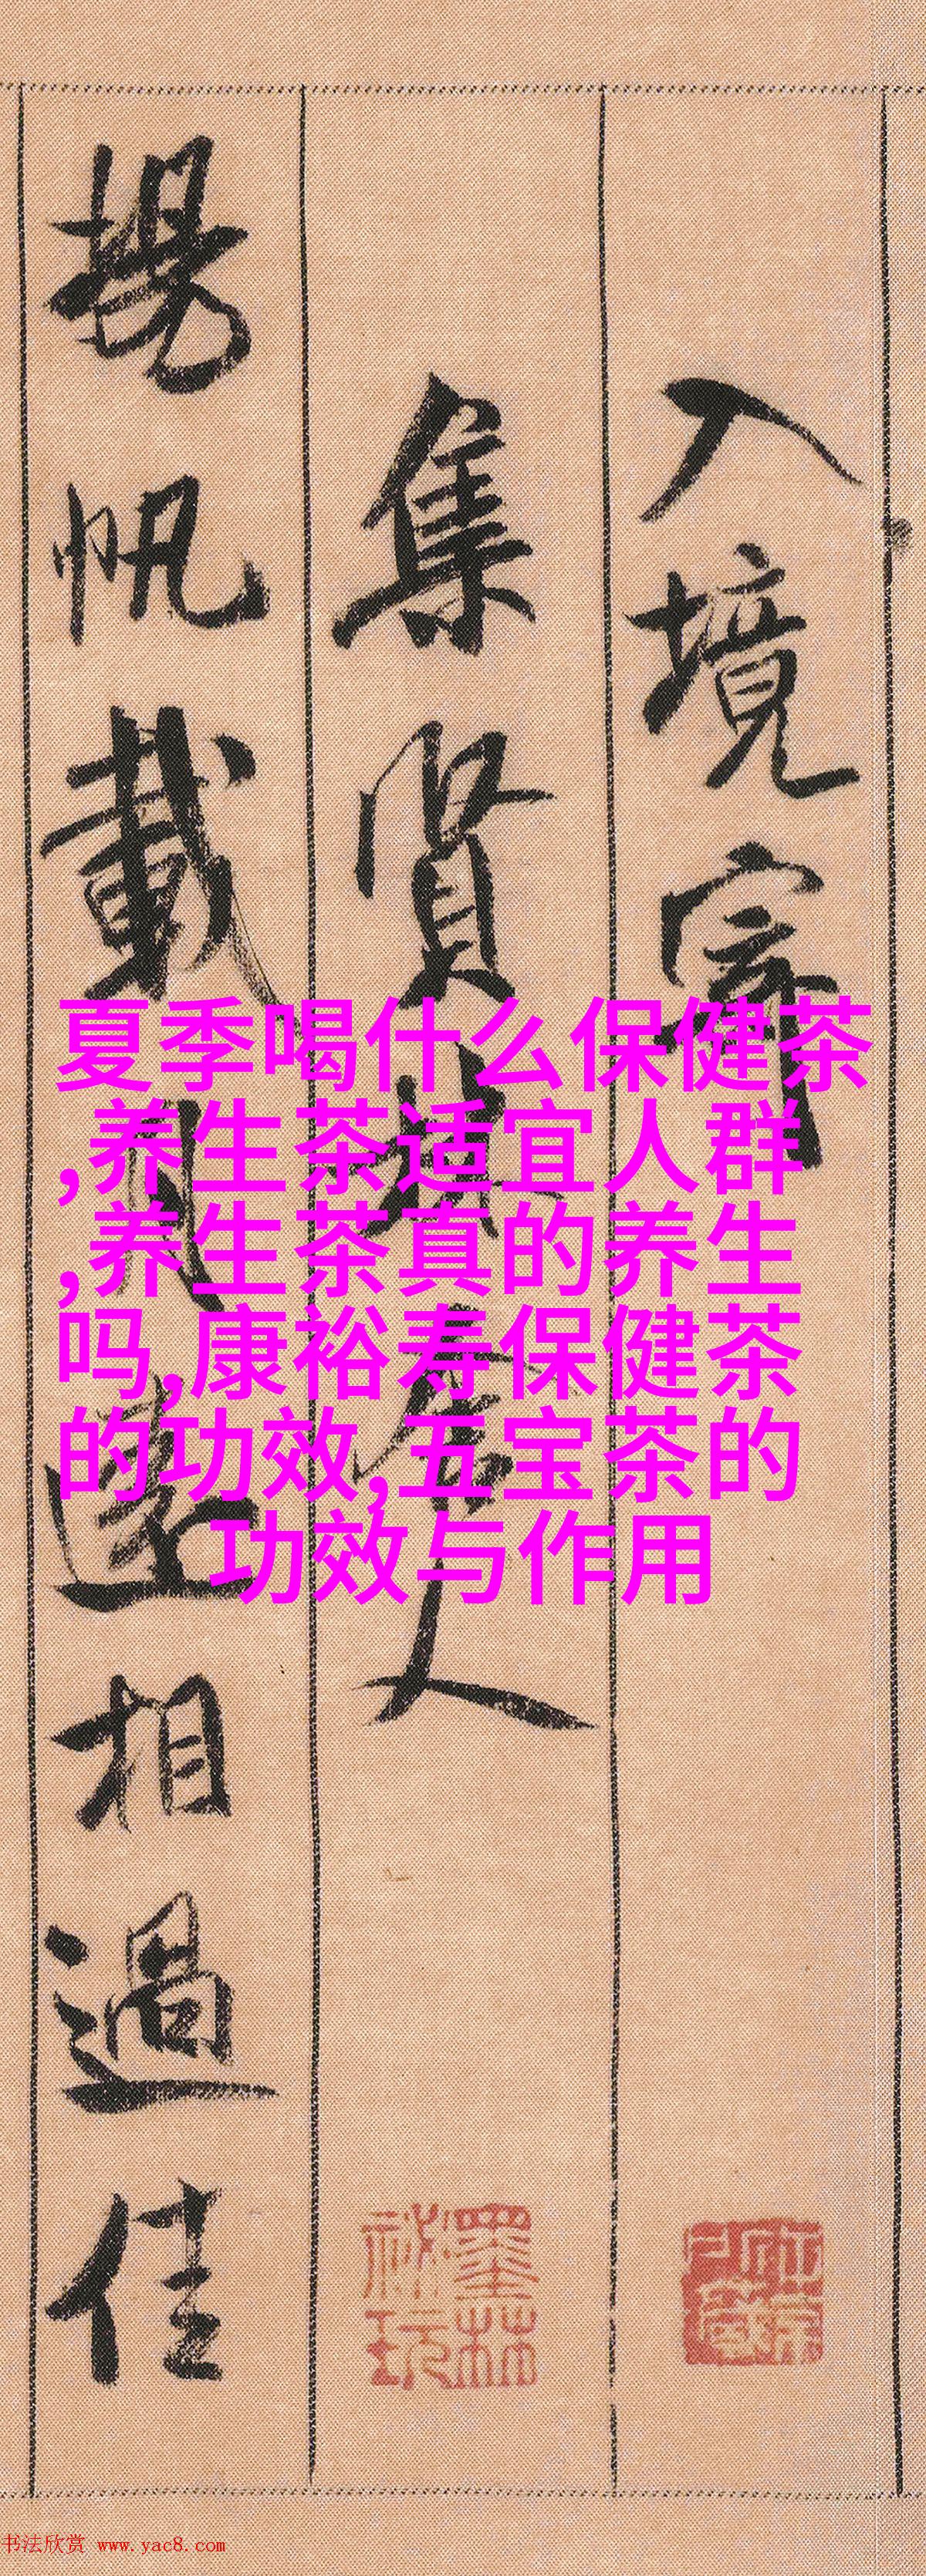 入境寄
集賢林舍人
揚帆載月遠相過佳
夏季喝什么保健茶
,养生茶适宜人群
,养生茶真的养生
吗,康裕寿保健茶
的功效,五宝茶的
功效与作用
墨林
祕玩
书法欣赏 www.yac8.com